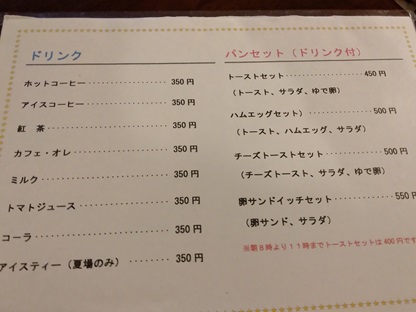 ドリンク
ホットコーヒー 350円
アイスコーヒー 350円
紅 茶 350円
カフェ・オレ 350円
ミルク 350円
トマトジュース 350円
コーラ 350円
アイスティー（夏場のみ） 350円
パンセット（ドリンク付）
トーストセット 450円
（トースト、サラダ、ゆで卵）
ハムエッグセット） 500円
（トースト、ハムエッグ、サラダ）
チーズトーストセット 500円
（チーズトースト、サラダ、ゆで卵）
卵サンドイッチセット 550円
（卵サンド、サラダ）
※朝８時より１１時までトーストセットは400円です